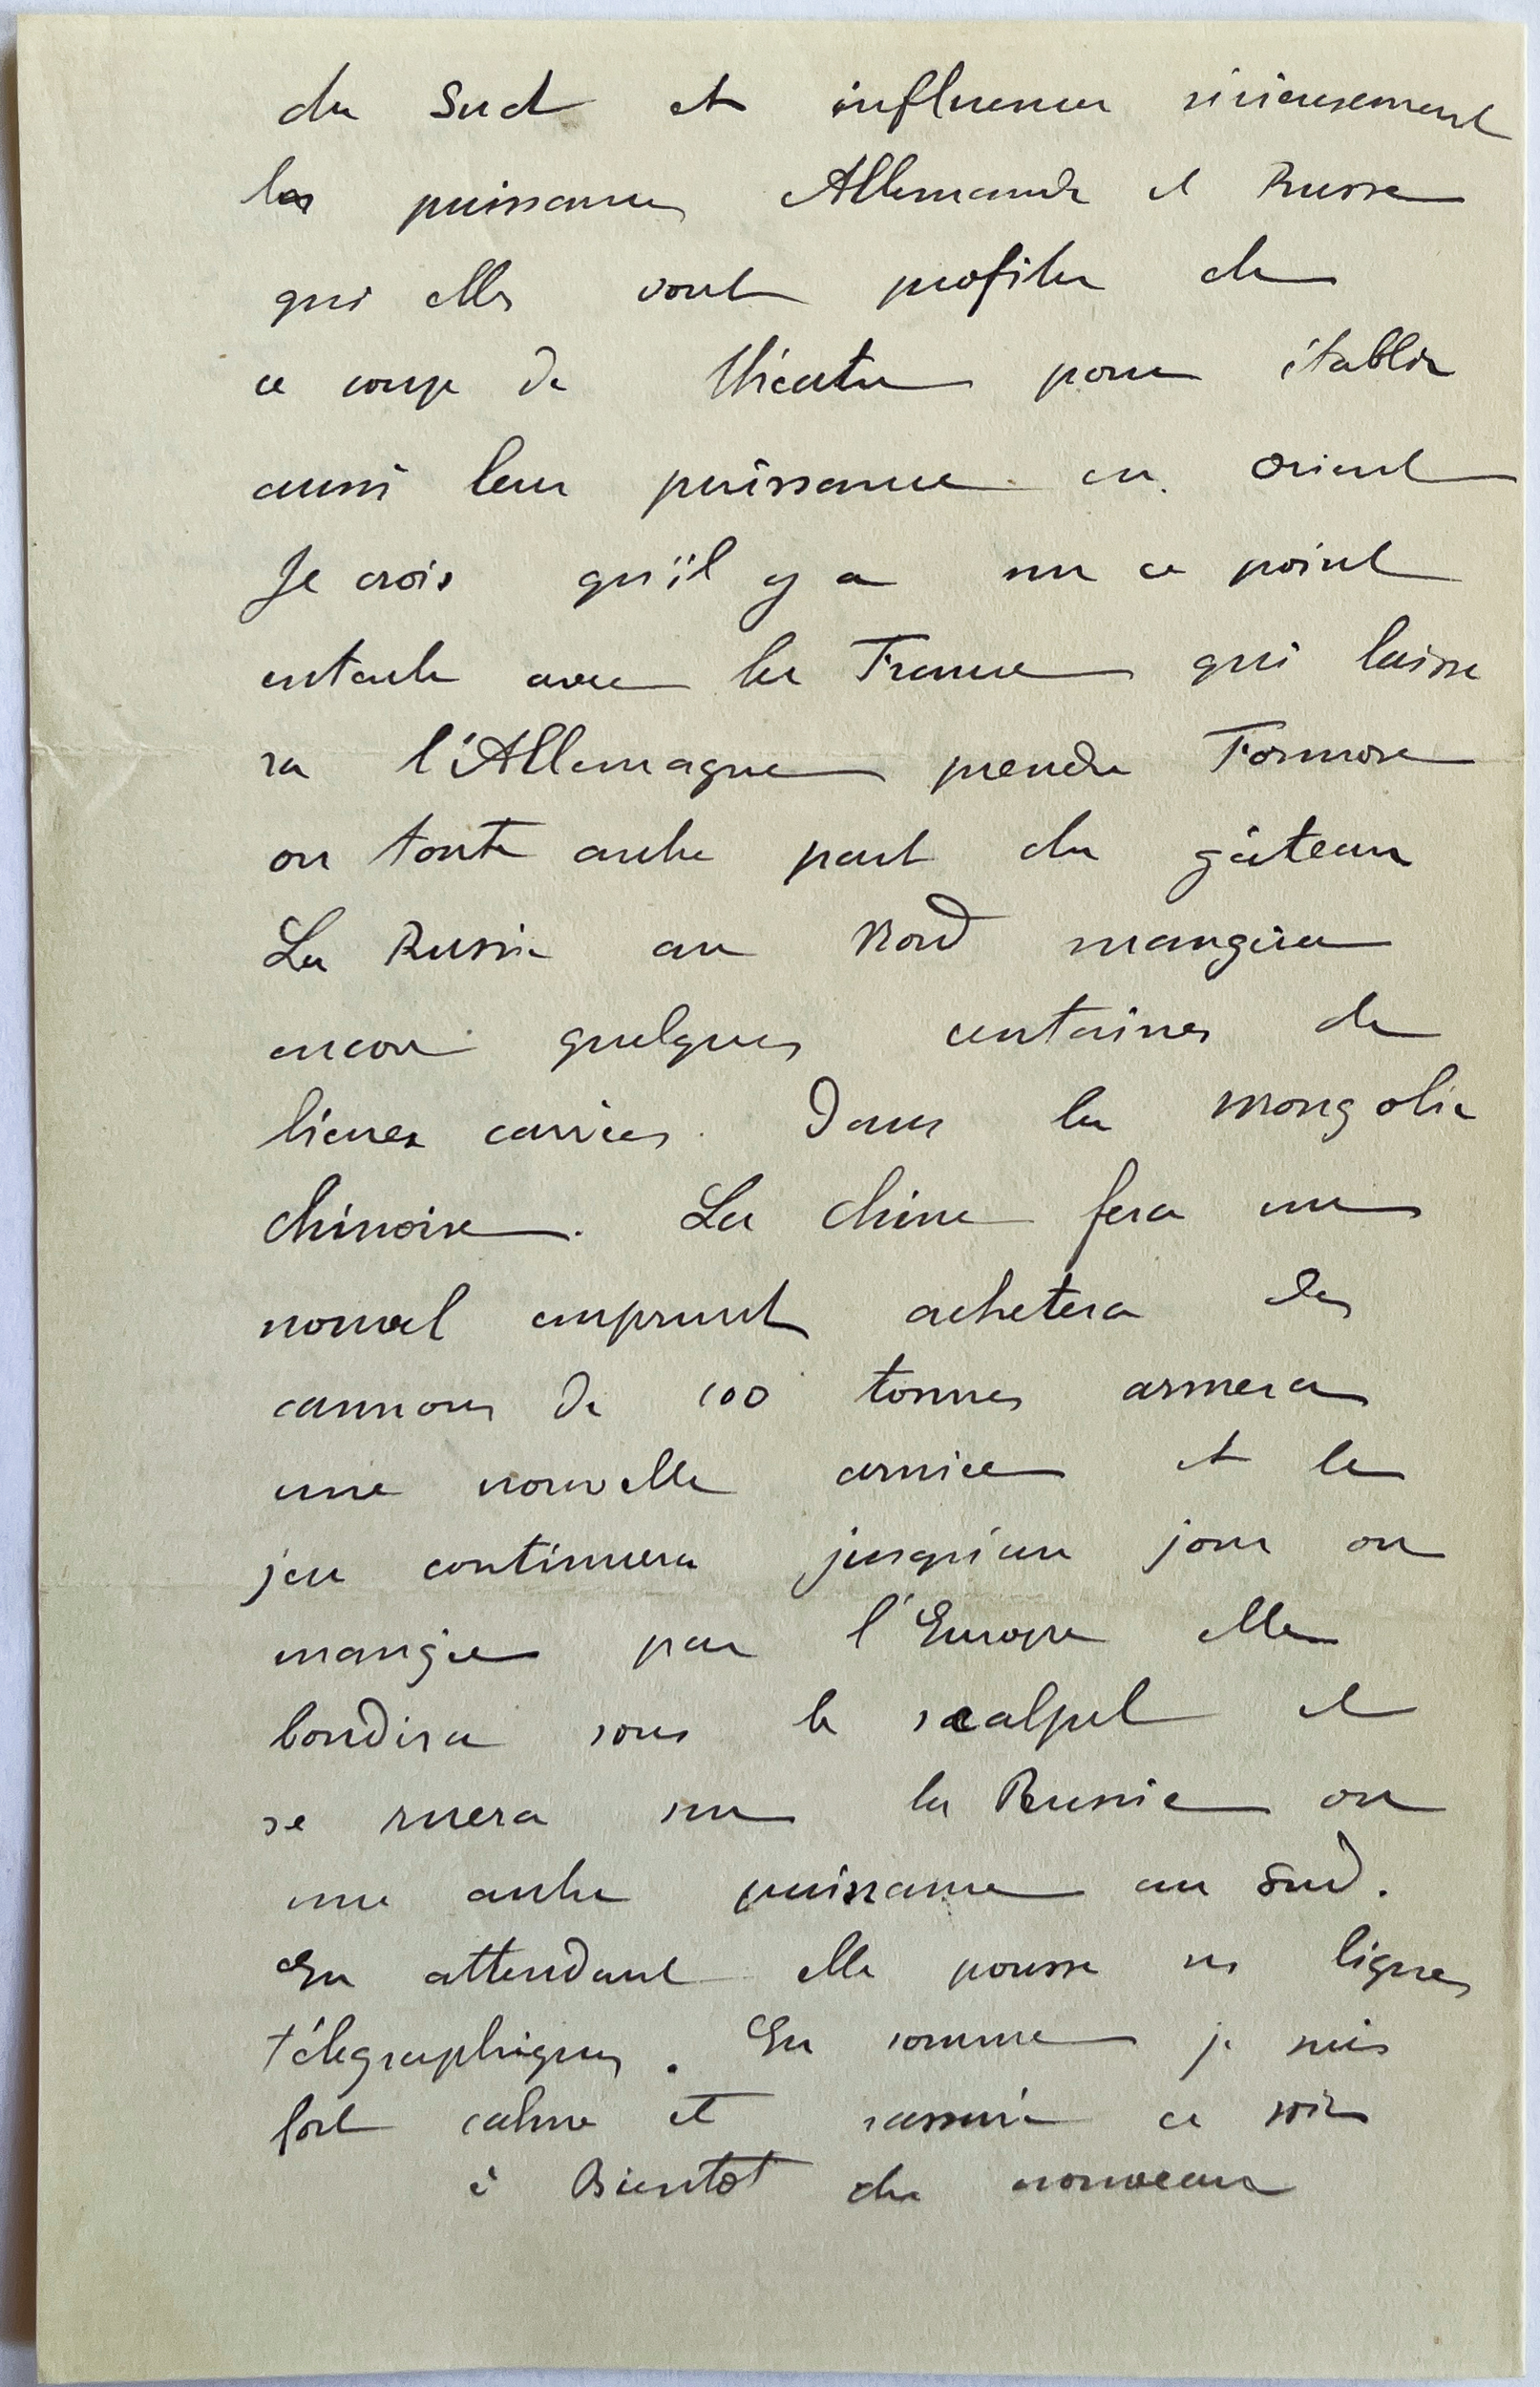 du Sud et influencer sérieusement
les puissances Allemande et Russe
qui elles vont profiter de
ce coup de théatre pour établir
aussi leur puissance en Orient
Je crois qu'il y a sur ce point
entente avec la France qui laisse
ra l'Allemagne prendre Formose
ou toute autre part du gâteau
La Russie au Nord mangera
encore quelques centaines de
lieues carrées. Dans la mongolie
chinoise. La chine fera un
nouvel emprunt achetera des
cannons de 100 tonnes armera
une nouvelle armée et le
jeu continuera jusqu'au jour ou
mangée par l'Europe elle
bondira sous le scalpel et
se ruera sur la Russie ou
une autre puissance au Sud.
En attendant elle pousse ses lignes
télégraphiques. En somme je suis
fort calme et rassuré ce soir
à Bientot du nouveau